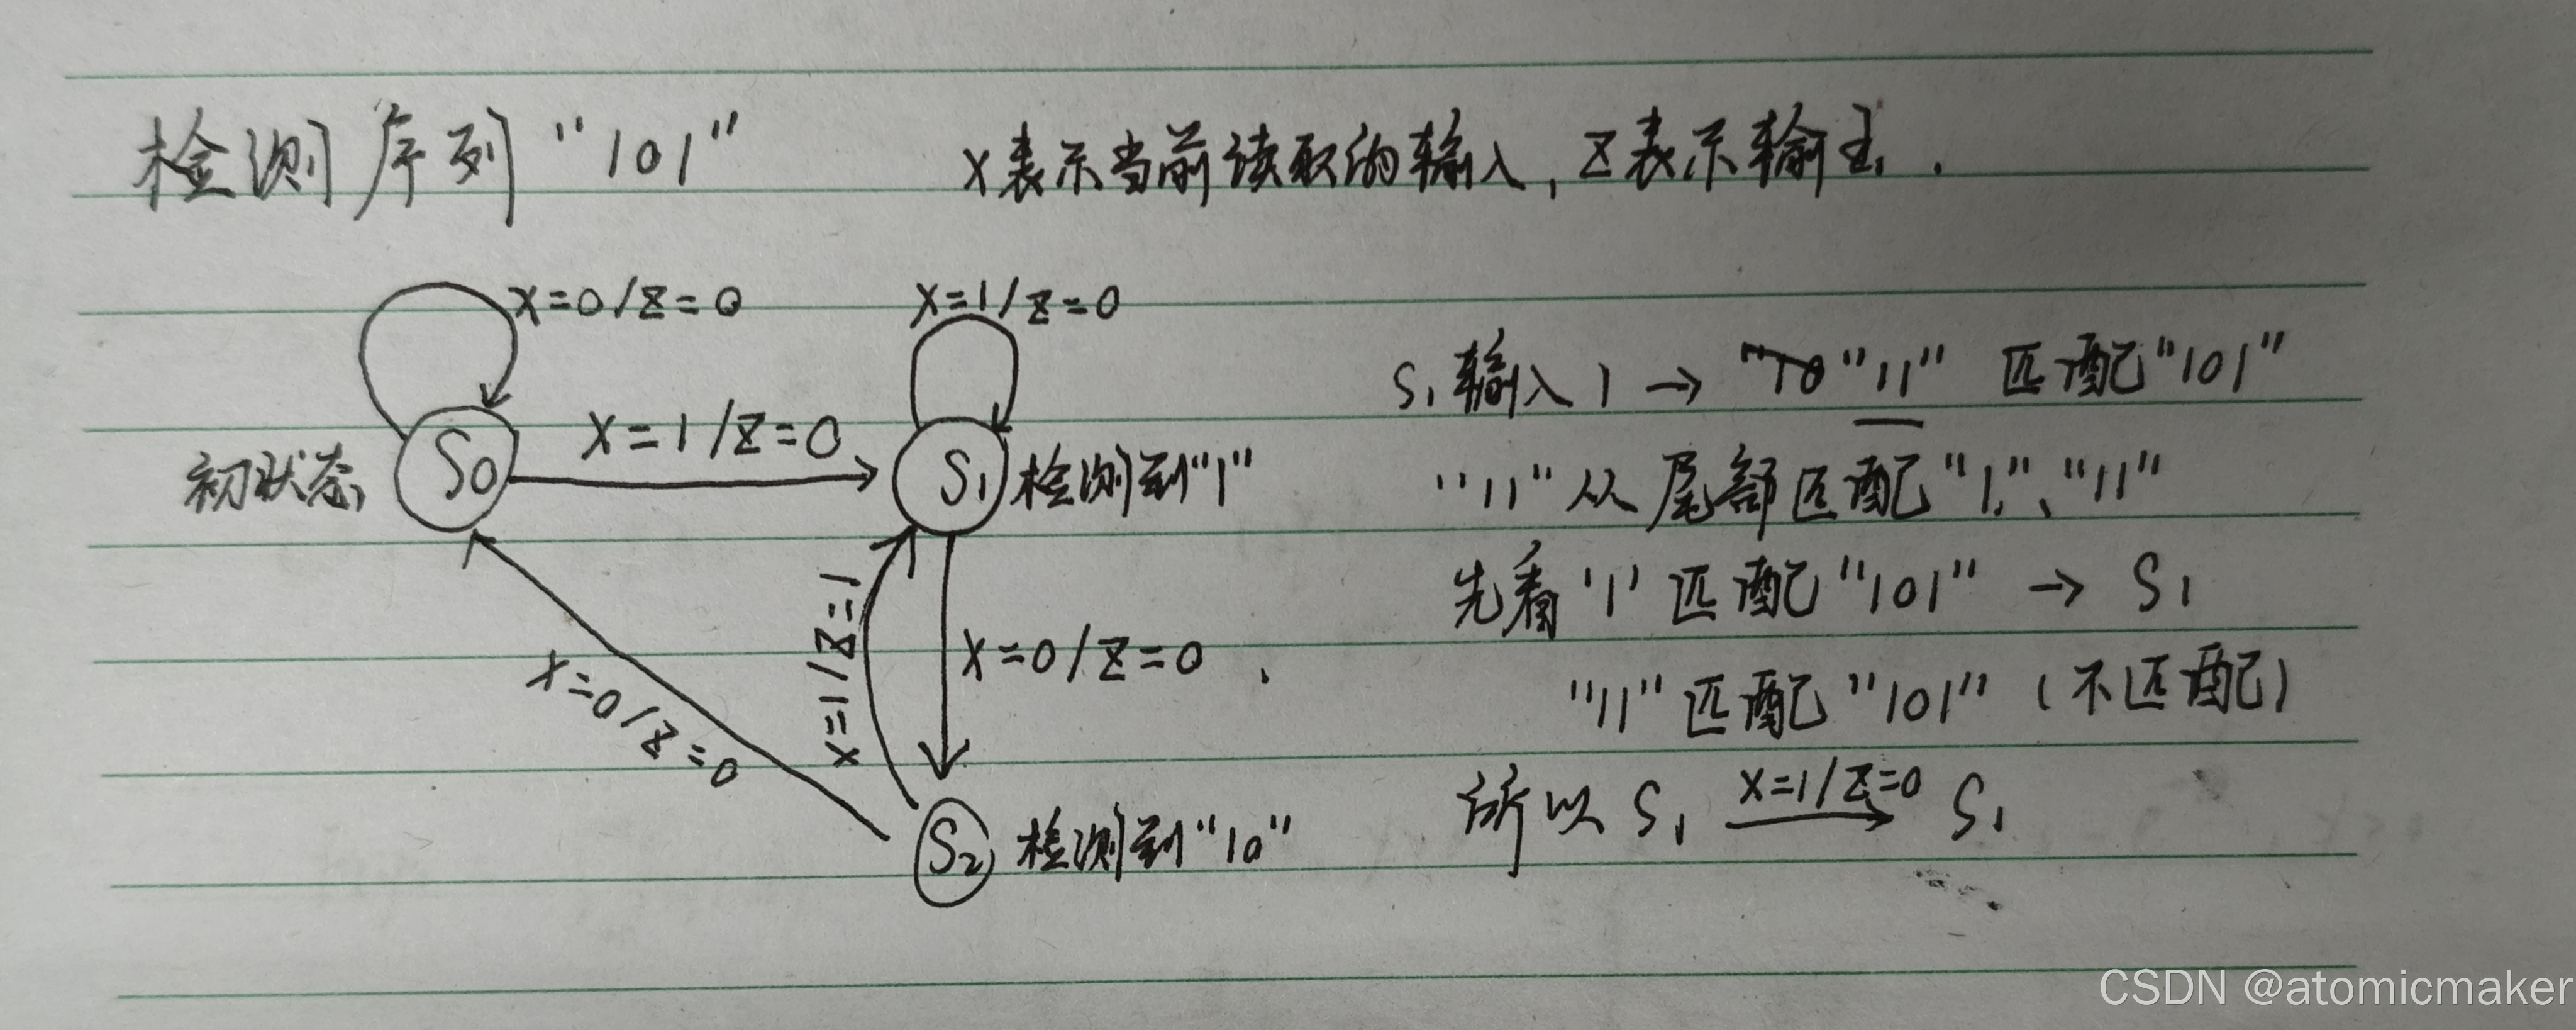 检测序列"101"
X表示当前读取的输入,Z表示输出.
X=0/Z=0
X=1/Z=0
初状态
S0
X=1/Z=0
S1
检测到"1"
X=0/Z=0
X=1/Z=1
X=0/Z=0
S2
检测到"10"
S1输入1→"11"匹配"101"
"11"从尾部匹配"1"、"11"
先看'1'匹配"101"→S1
"11"匹配"101"(不匹配)
所以S1 X=1/Z=0→S1
CSDN @atomicmaker